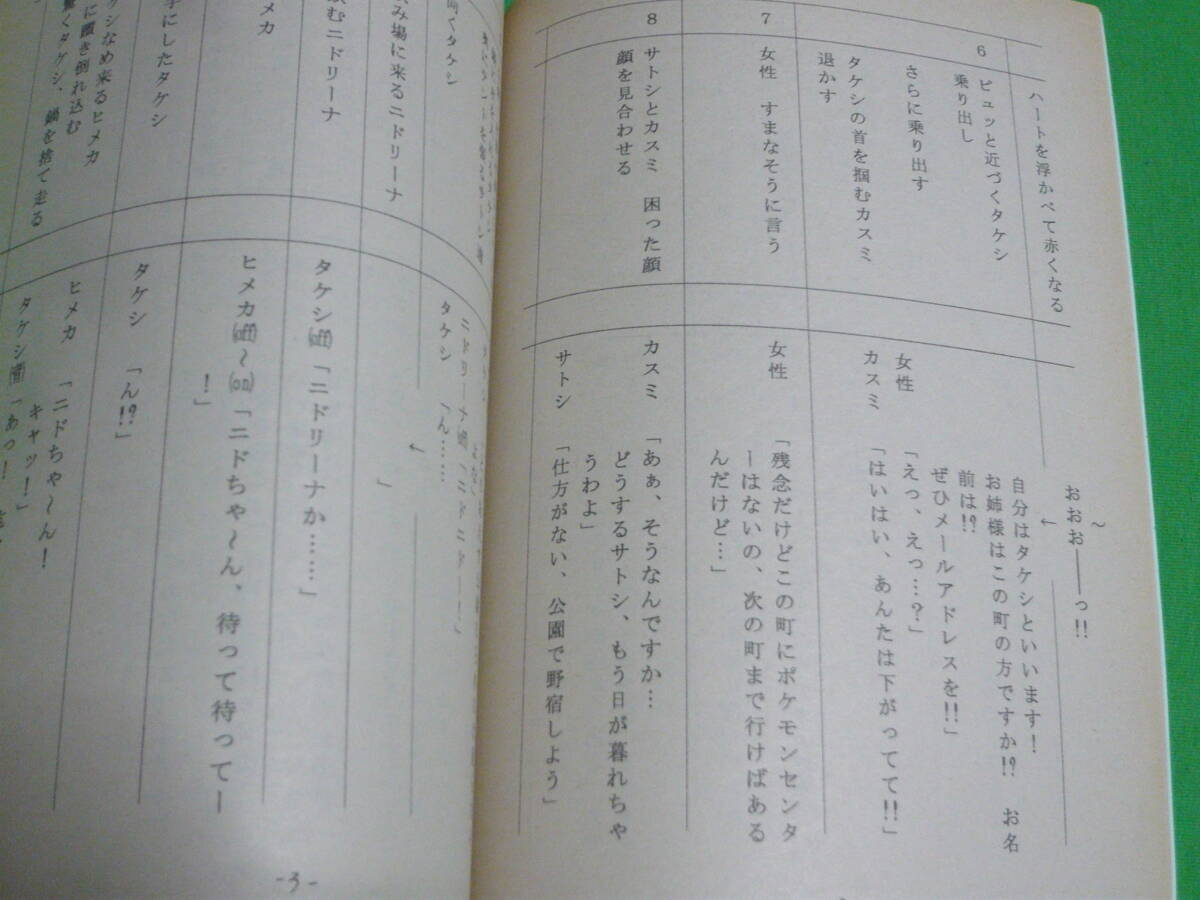 ハートを浮かべて赤くなる
～
おおお――っ!!
6
ピュッと近づくタケシ
乗り出し
さらに乗り出す
タケシの首を掴むカスミ
退かす
←
自分はタケシといいます！
お姉様はこの町の方ですか!?　お名
前は!?
ぜひメールアドレスを!!」
女性　「えっ、えっ…？」
カスミ　「はいはい、あんたは下がってて!!」
7
女性　すまなそうに言う
女性　「残念だけどこの町にポケモンセンタ
ーはないの、次の町まで行けばある
んだけど…」
8
サトシとカスミ　困った顔
顔を見合わせる
カスミ　「あぁ、そうなんですか…
どうするサトシ、もう日が暮れちゃ
うわよ」
サトシ　「仕方がない、公園で野宿しよう」
向くタケシ
ニドリーナ
タケシ　「ん……
←
み場に来るニドリーナ
」
飲むニドリーナ
タケシ(off)「ニドリーナか……」
メカ
ヒメカ(off)～(on)「ニドちゃ～ん、待って待ってー
！」
手にしたタケシ
タケシ　「ん!?」
ケシなめ来るヒメカ
に躓き倒れ込む
驚くタケシ、鍋を捨て走る
ヒメカ　「ニドちゃ～ん！
キャッ！」
タケシ「あっ！
-3-